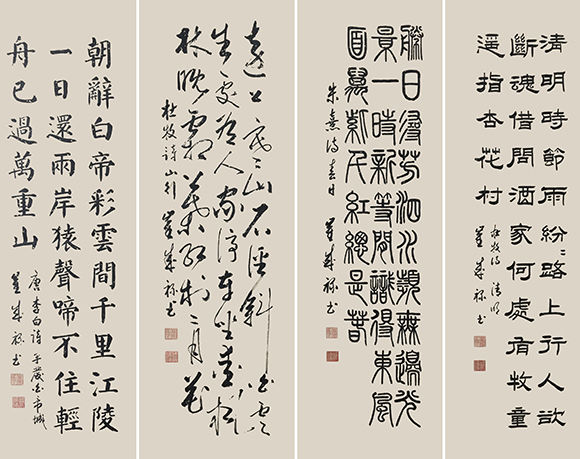 清明時節雨紛〻路上行人欲
斷魂借問酒家何處有牧童
遥指杏花村
杜牧詩 清明
書
勝日尋芳泗水濱無邊光
景一時新等閒識得東風
面萬紫千紅總是春
朱熹詩春日
書
遠上寒山石徑斜白雲
生處有人家停車坐愛楓
林晚霜葉紅於二月花
杜牧詩山行
書
朝辭白帝彩雲間千里江陵
一日還兩岸猿聲啼不住輕
舟已過萬重山
唐李白詩早發白帝城
書